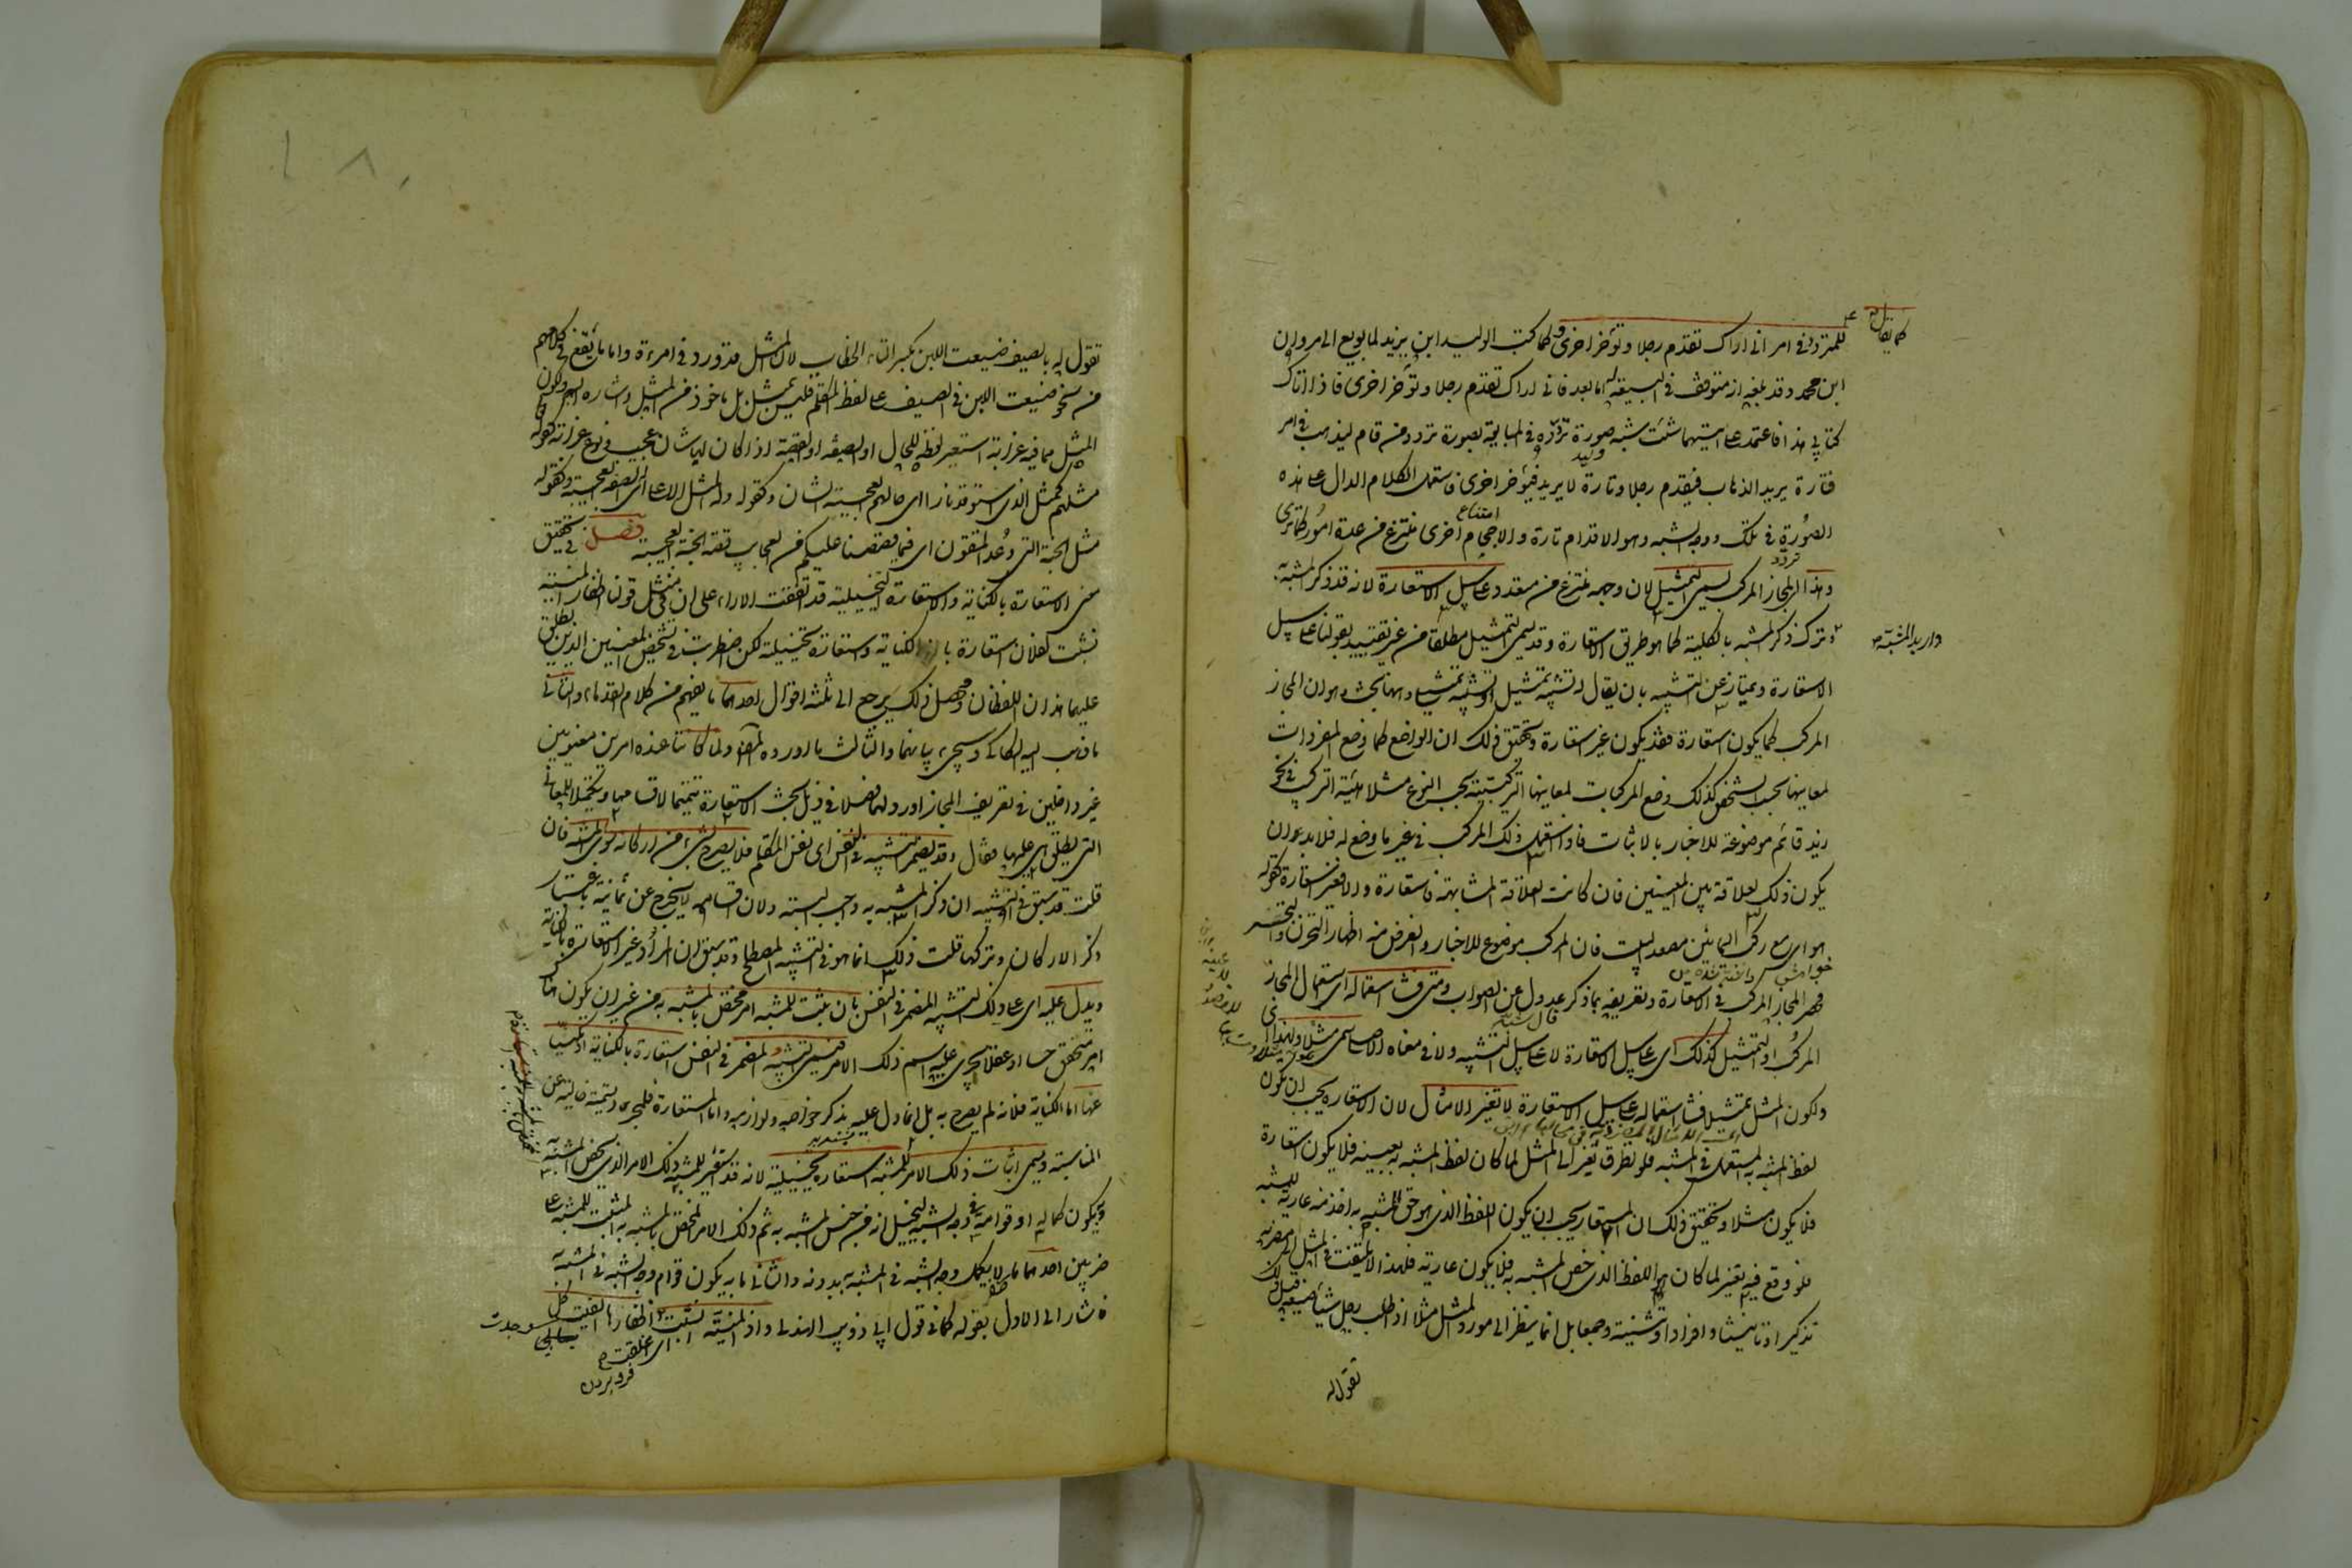 كما يقال
للمتردد في امر اني اراك تقدم رجلا وتؤخر اخرى كما كتب الوليد ابن يزيد لما بويع الى مروان
ابن محمد وقد بلغه انه متوقف في البيعة له اما بعد فاني اراك تقدم رجلا وتؤخر اخرى فاذا اتاك
كتابي هذا فاعتمد على ايتهما شئت شبه صورة تردده في المبايعة بصورة تردد من قام ليذهب في امر
فتارة يريد الذهاب فيقدم رجلا وتارة لا يريد فيؤخر اخرى فاستعمل الكلام الدال على هذه
الصورة في تلك ووجه الشبه وهو الاقدام تارة والاحجام اخرى منتزع من عدة امور كما ترى
امتناع
وهذا المجاز المركب يسمى التمثيل لان وجهه منتزع من متعدد على سبيل الاستعارة لانه قد ذكر المشبه به
تردد
واريد المشبه
وترك ذكر المشبه بالكلية كما هو طريق الاستعارة وقد يسمى التمثيل مطلقا من غير تقييد بقولنا على سبيل
الاستعارة ويمتاز عن التشبيه بان يقال له تشبيه تمثيل او تشبيه تمثيلي وههنا بحث وهو ان المجاز
المركب كما يكون استعارة فقد يكون غير استعارة وتحقيق ذلك ان الواضع كما وضع المفردات
لمعانيها بحسب الشخص كذلك وضع المركبات لمعانيها التركيبية بحسب النوع مثلا هيئة التركيب في نحو
زيد قائم موضوعة للاخبار بالاثبات فاذا استعمل ذلك المركب في غير ما وضع له فلا بد وان
يكون ذلك لعلاقة بين المعنيين فان كانت العلاقة المشابهة فاستعارة والا فغير استعارة كقوله
هواي مع ركب اليمانين مصعد البيت فان المركب موضوع للاخبار والغرض منه اظهار التحزن والتحسر
فحصر المجاز المركب في الاستعارة وتعريفه بما ذكر عدول عن الصواب ومتى فشا استعماله اي استعمال المجاز
المركب او التمثيل كذلك اي على سبيل الاستعارة لا على سبيل التشبيه ولا في معناه الاصلي سمي مثلا ولهذا اي
ولكون المثل تمثيلا فشا استعماله على سبيل الاستعارة لا تغير الامثال لان الاستعارة يجب ان يكون
لفظ المشبه به المستعمل في المشبه فلو تطرق تغير الى المثل لما كان لفظ المشبه به بعينه فلا يكون استعارة
فلا يكون مثلا وتحقيق ذلك ان المستعار يجب ان يكون اللفظ الذي هو حق المشبه به اخذ منه عارية للمشبه
فلو وقع فيه تغير لما كان هو اللفظ الذي خص المشبه به فلا يكون عارية فلهذا لا يلتفت في المثل الى مضربه
تذكيرا وتانيثا وافرادا وتثنية وجمعا بل انما ينظر الى مورد المثل مثلا اذا طلب رجل شيئا ضيعه قبل ذلك
تقول له
تقول له بالصيف ضيعت اللبن بكسر التاء الخطاب لان المثل قد ورد في امرءة واما ما يقع في كلامهم
من نحو ضيعت اللبن في الصيف على لفظ المتكلم فليس بمثل بل ماخوذ من المثل واشارة اليه ولكون
المثل مما فيه غرابة استعير لفظه للحال او الصفة او القصة اذا كان لها شان عجيب ونوع غرابة كقوله
مثلهم كمثل الذي استوقد نارا اي حالهم العجيبة الشان وكقوله وله المثل الاعلى اي الصفة العجيبة وكقوله
مثل الجنة التي وعد المتقون اي فيما قصصنا عليكم من العجايب قصة الجنة العجيبة فصل في تحقيق
معنى الاستعارة بالكناية والاستعارة التخييلية قد اتفقت الاراء على ان في مثل قولنا اظفار المنية
نشبت بفلان استعارة بالكناية واستعارة تخييلية لكن اضطربت في تشخيص المعنيين الذين يطلق
عليهما هذان اللفظان ومحصل ذلك يرجع الى ثلثة اقوال احدها ما يفهم من كلام القدماء والثاني
ما ذهب اليه السكاكي وسيجيء بيانهما والثالث ما اورده المصنف ولما كانتا عنده امرين معنويين
غير داخلين في تعريف المجاز اورد لهما فصلا في ذيل بحث الاستعارة تتميما لاقسامها وتكميلا للمعاني
التي يطلق هي عليها فقال قد يضمر التشبيه في النفس اي نفس المتكلم فلا يصرح بشيء من اركانه سوى المشبه فان
قلت قد سبق في التشبيه ان ذكر المشبه به واجب البتة ولان اقسامه لا يخرج عن ثمانية باعتبار
ذكر الاركان وتركها قلت ذلك انما هو في التشبيه المصطلح وقد سبق ان المراد غير الاستعارة بالكناية
ويدل عليه اي على ذلك التشبيه المضمر في النفس بان يثبت للمشبه امر مختص بالمشبه به من غير ان يكون هناك
امر متحقق حسا او عقلا يجري عليه اسم ذلك الامر فيسمى التشبيه المضمر في النفس استعارة بالكناية او مكنيا
عنها اما الكناية فلانه لم يصرح به بل انما دل عليه بذكر خواصه ولوازمه واما الاستعارة فلمجرد تسمية خالية عن
المناسبة ويسمى اثبات ذلك الامر للمشبه استعارة تخييلية لانه قد استعير للمشبه ذلك الامر الذي يخص المشبه به
وبه يكون كماله او قوامه في وجه الشبه ليتخيل انه من جنس المشبه به ثم ذلك الامر المختص بالمشبه به المثبت للمشبه على
ضربين احدهما ما لا يكمل وجه الشبه في المشبه به بدونه والثاني ما به يكون قوام وجه الشبه في المشبه به
فاشار الى الاول بقوله كما في قول ابي ذويب الهذلي واذا المنية انشبت اظفارها الفيت كل
اي علقت
وجدت
فرو بردن